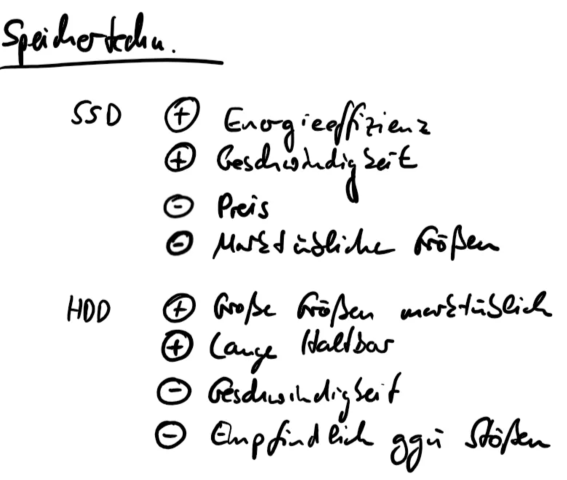 Speichertechn.
SSD ⊕ Energieeffizienz
⊕ Geschwindigkeit
⊖ Preis
⊖ Marktübliche Größen
HDD ⊕ Große Größen marktüblich
⊕ Lange Haltbar
⊖ Geschwindigkeit
⊖ Empfindlich ggü Stößen